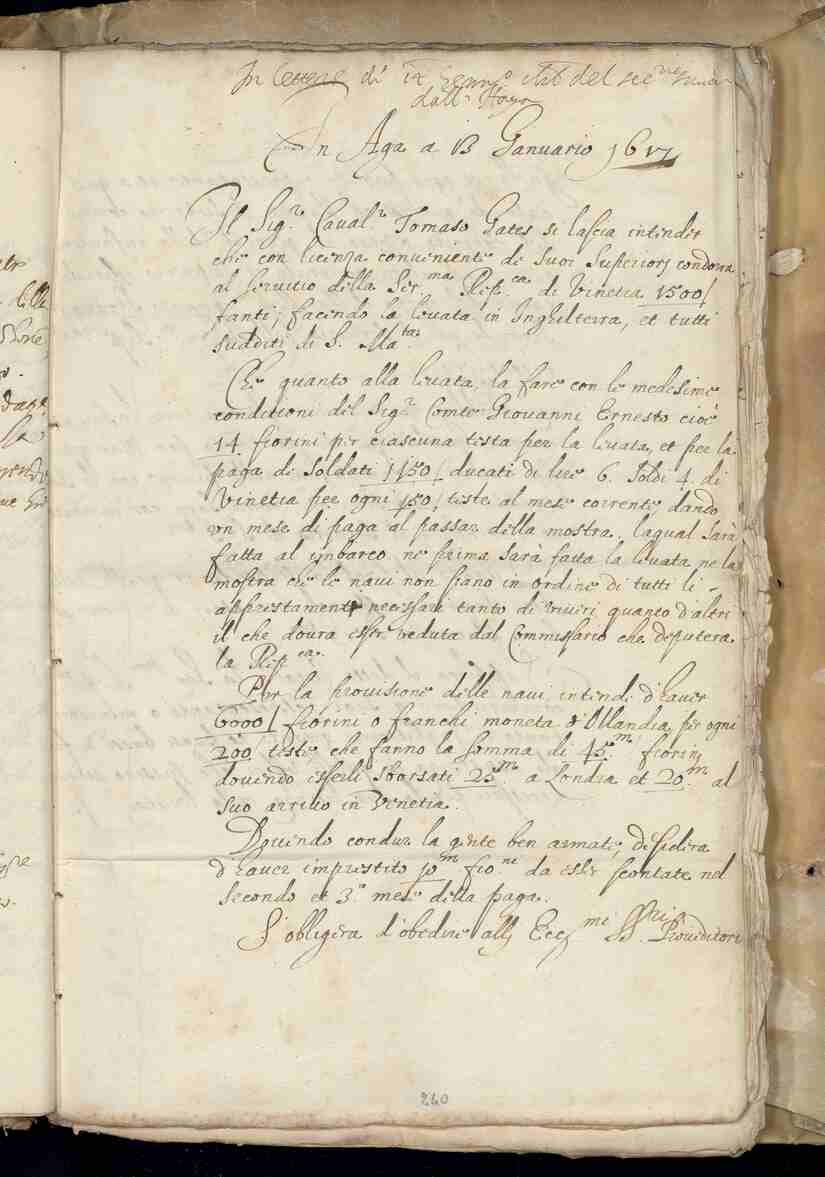 In lettere di 14 Genn.º del
dall' Haya
In Aga a 13 Ganuario 1617
Il Sig.r Caval.r Tomaso Gates si lascia intender
che con licenza conveniente de suoi superiorj condorra
al servitio della Ser.ma Rep.ca di Vinetia 1500/
fanti; facendo la levata in Inghilterra, et tutti
sudditi di S. Ma.ta
Che quanto alla levata, la fare con le medesime
conditioni del Sig.r Comte Giovanni Ernesto cioè
14 fiorini per ciascuna testa per la levata, et per la
paga di soldati 1150/ ducati di lire 6. soldi 4. di
Vinetia per ogni 150/ teste al mese corrente dando
un mese di paga al passar della mostra, laqual sarà
fatta al imbarco ne prima sarà fatta la levata ne la
mostra che le navi non siano in ordine di tutti li
apprestamenti necessari tanto di viveri quanto d'altri
il che doura esser veduta dal Commissario che deputera
la Rep.ca
Per la provisione delle navi intende d'haver
6000/ fiorini o franchi moneta d'Ollandia per ogni
200/ teste che fanno la somma di 45.m fiorini
dovendo esserli sborsati 25.m a Londra et 20.m al
suo arrivo in Venetia.
Dovendo condur la gente ben armata, desidera
d'haver imprestito 10.m fio.ni da esser scontate nel
secondo et 3.º mese della paga.
S'obligera d'obedire allj Ecc.mi SS.ri Proveditori
260